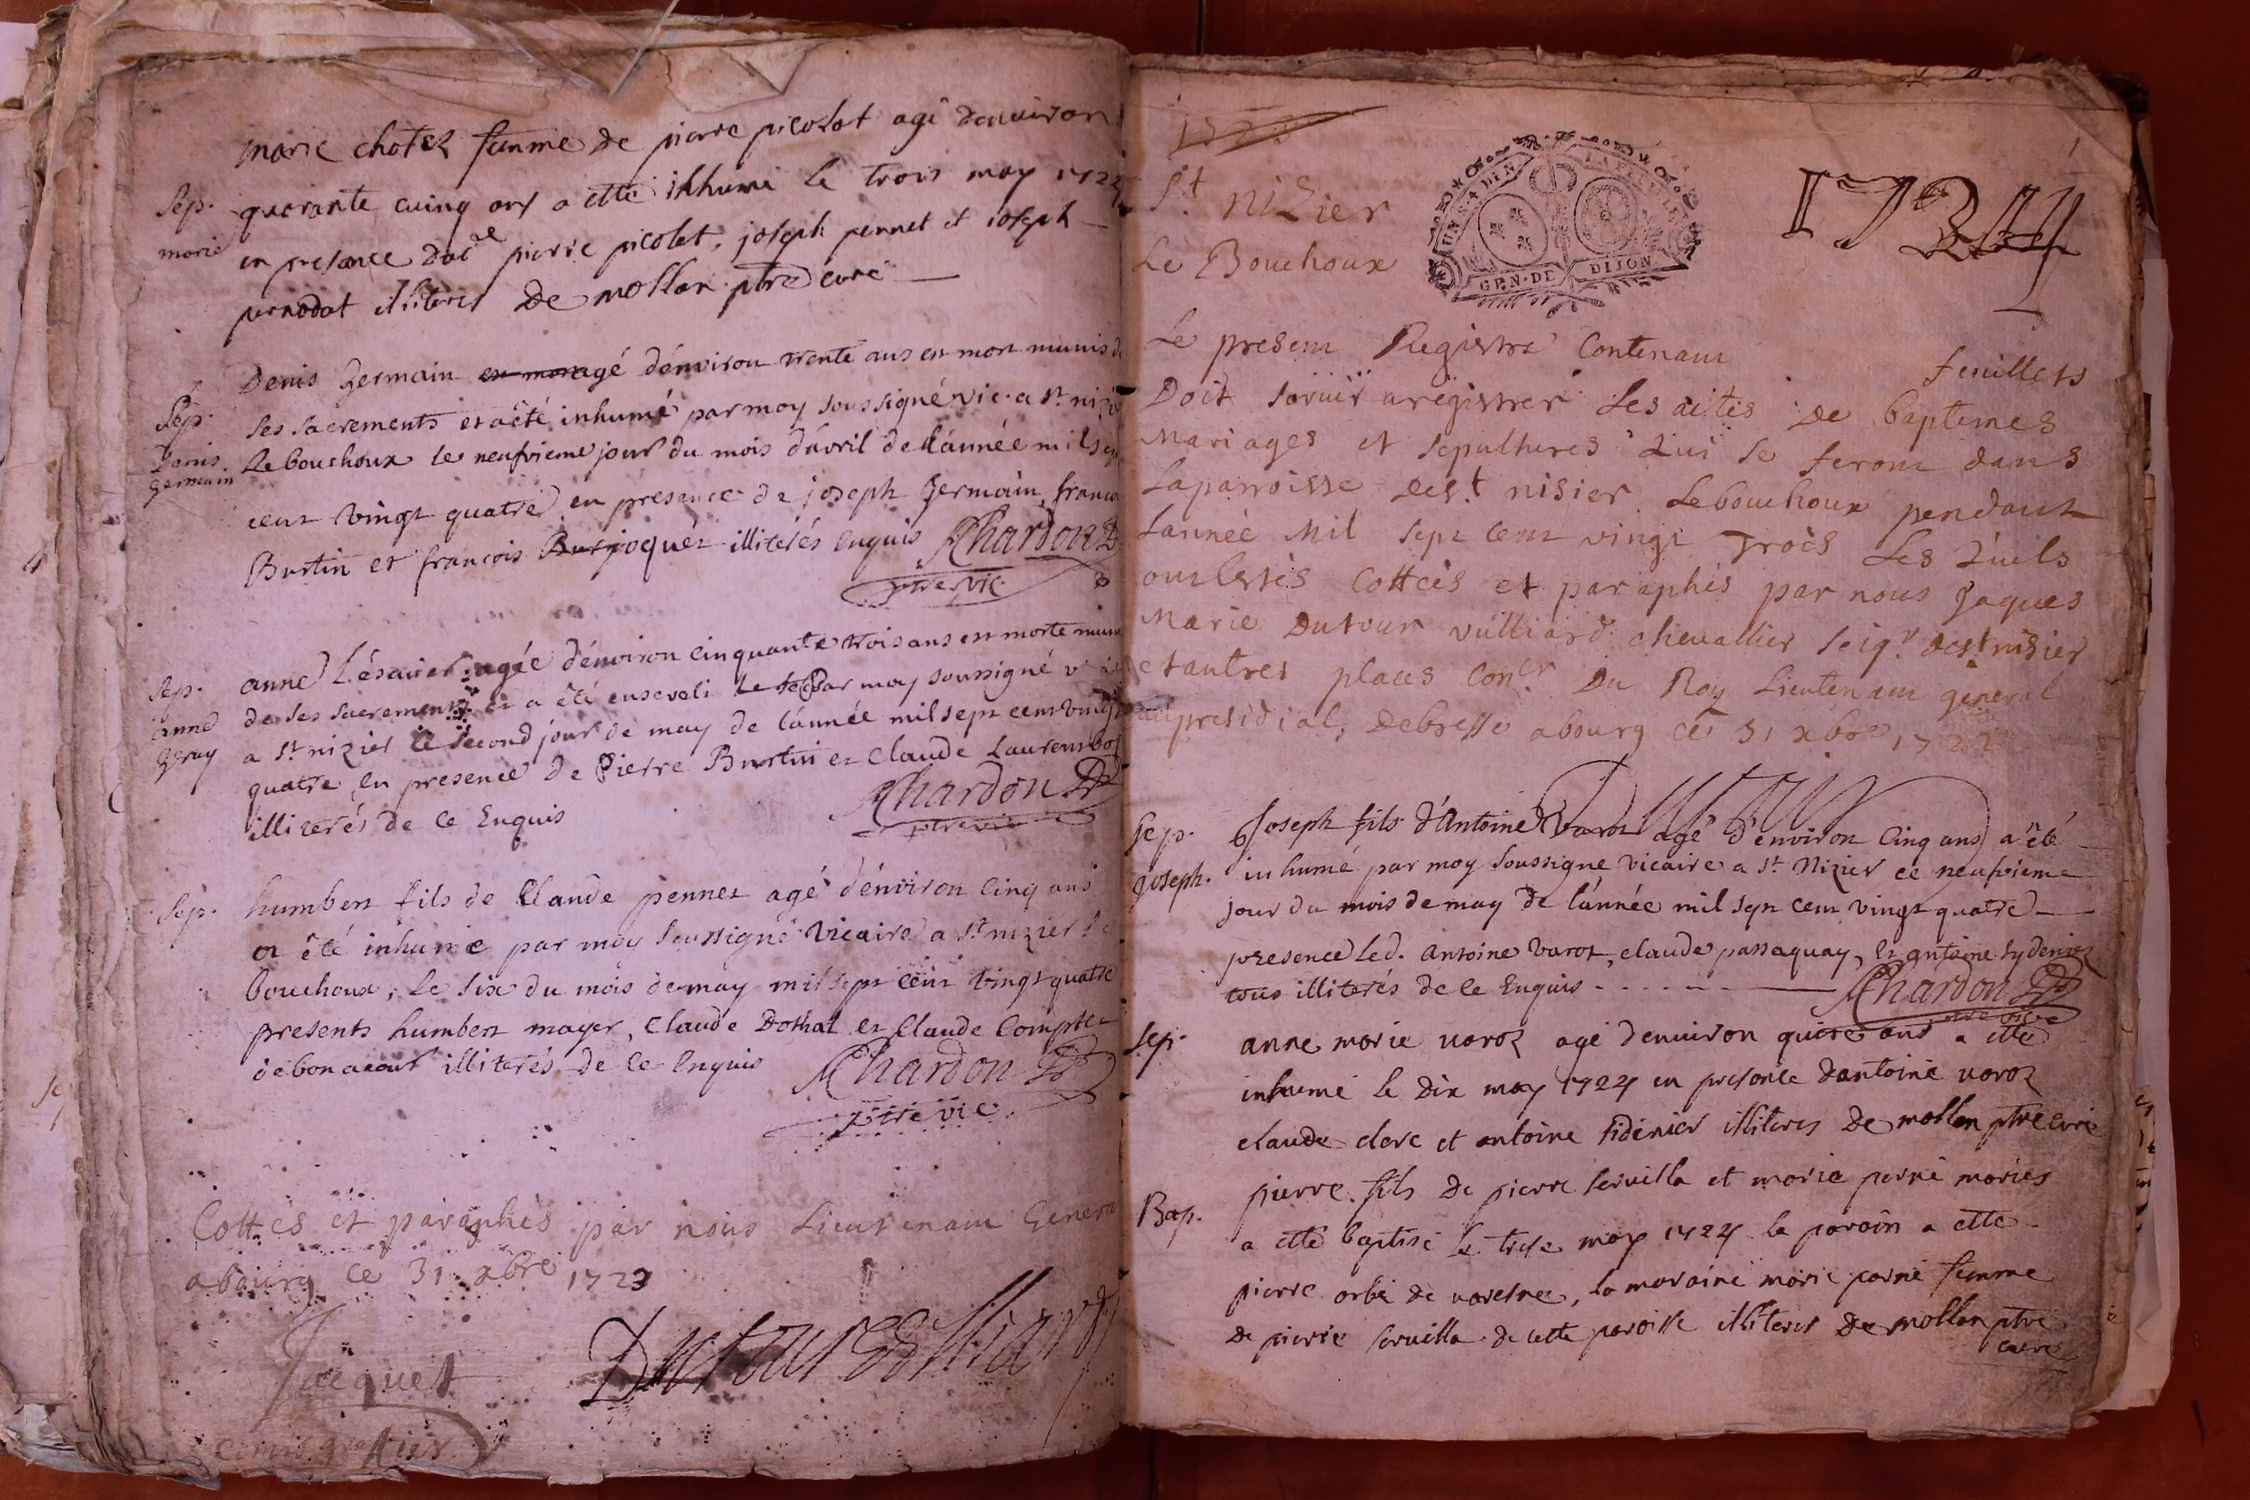 marie chotel femme de pierre picolot agé denuiron
Sep. quarante cuinq ans a etté inhumé le trois may 1724
marie en presance dud pierre picolet, joseph pennet et ioseph
perrodat illiteres De mollan ptre curé
Denis Germain est mort agé d'environ trente ans est mort munis de
Sep. ses sacrements et a été inhumé par moy soussigné vic. a st. nizie
Denis Le bouchoux le neufvieme jour du mois d'avril de l'année mil sept
Germain
cent vingt quatre, en presence de joseph Germain, francois
Burtin et françois Bur joquet illiterés enquis Chardon
ptre vic
anne L'ésavier agée d'environ cinquante trois ans est morte munie
Sep. de ses sacrements et a été enseveli le se par moy soussigné v
anne a st. nizier le second jour de may de l'année mil sept cent vingt
quatre, en presence de Pierre Burtin et Claude Laurent
illiterés de ce Enquis Chardon
ptre vic
Sep. humbert fils de Claude pennet agé d'environ cinq ans
a été inhumé par moy soussigné vicaire a st nizier le
bouchoux, le six du mois de may mil sept cent vingt quatre
presents humbert mayer, Claude Dothal et Claude Compte
debonacour illiterés de ce enquis Chardon
ptre vic
Cottes et paraphés par nous Lieutenant General
a bourg ce 31 xbre 1723
Jacquet Dutour Vulliard
comis greffier
St. nizier
Le Bouchoux
UN S. 4 DEN. LA FEUILLE
GEN. DE DIJON
1724
Le present Registre Contenant feuillets
Doit servir aregistrer Les actes De baptemes
Mariages et sepultures Qui se feront dans
La parroisse de St. nisier Le bouchoux pendant
Lannée Mil sept cent vingt Trois Les Quels
ont estés Cottés et paraphés par nous Jaques
Marie Dutour vulliard chevallier seigr. de St nisier
et autres places Coner Du Roy Lieutenant general
au presidial, De bresse a bourg ce 31 xbre 172
Dutour
Sep. Joseph fils d'Antoine Varot agé d'environ Cinq ans a été
joseph. inhumé par moy soussigné vicaire a St. Nizier ce neufvieme
jour du mois de may de l'année mil sept cent vingt quatre
presence led. antoine Varot, claude passaquay, et antoine sydenier
tous illiterés de ce Enquis Chardon
ptre vic
Sep. anne marie varot agé denuiron quatre ans a etté
inhumé le dix may 1724 en presance dantoine varot
claude clerc et antoine sidenier illiteres De mollan ptre curé
Bap. pierre fils de pierre seruilla et marie perné mariés
a etté baptisé le trese may 1724 le parain a etté
pierre orbé de varesne, la maraine marie parné femme
de pierre seruilla de cette paroisse illiteres De mollan ptre
curé